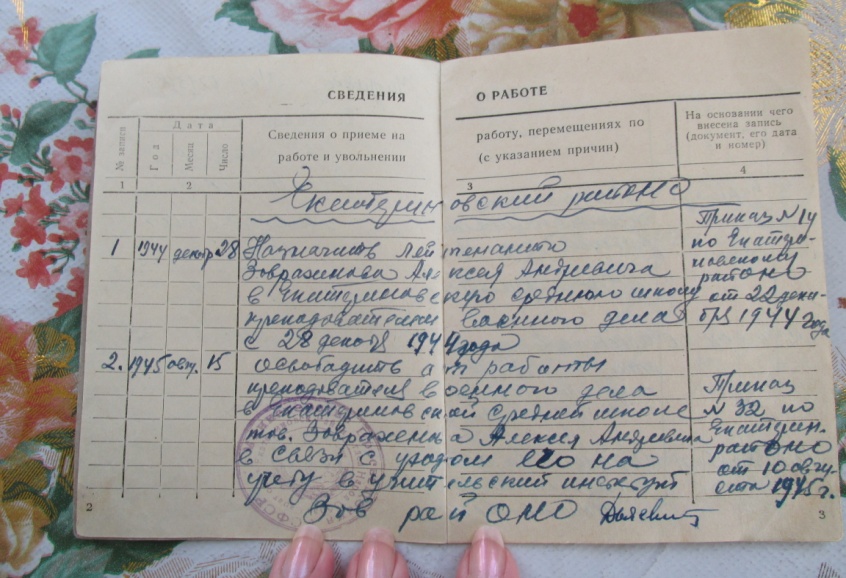 СВЕДЕНИЯ О РАБОТЕ
№ записи
Дата
Год
Месяц
Число
Сведения о приеме на работу, перемещениях по
работе и увольнении (с указанием причин)
На основании чего
внесена запись
(документ, его дата
и номер)
1 2 3 4
Екатериновский районо
1 1944 декабр 28 Назначить лейтенанта
Завражинова Алексея Андреевича
в Екатериновскую среднюю школу
преподавателем военного дела
с 28 декабря 1944 года
Приказ № 14
по Екатери-
новскому
районо
от 22 дека-
бря 1944 года
2. 1945 авг. 15 Освободить от работы
преподавателя военного дела
в Екатериновской средней школе
тов. Завражнова Алексея Андреевича
в связи с уходом его на
учебу в учительский институт
Приказ
№ 32 по
Екатерин.
районо
от 10 авгу-
ста 1945 г.
Зав райОНО
2
3